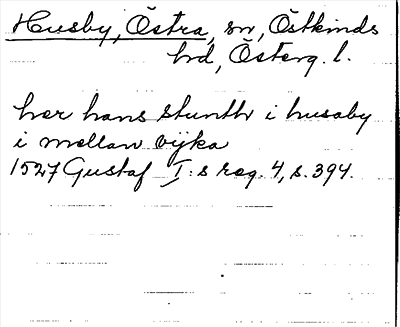 Husby, Östra, sn, Östkinds
hd, Österg. l.
her hans stunth i husaby
i mellan vijka
1527 Gustaf I:s reg. 4, s. 394.